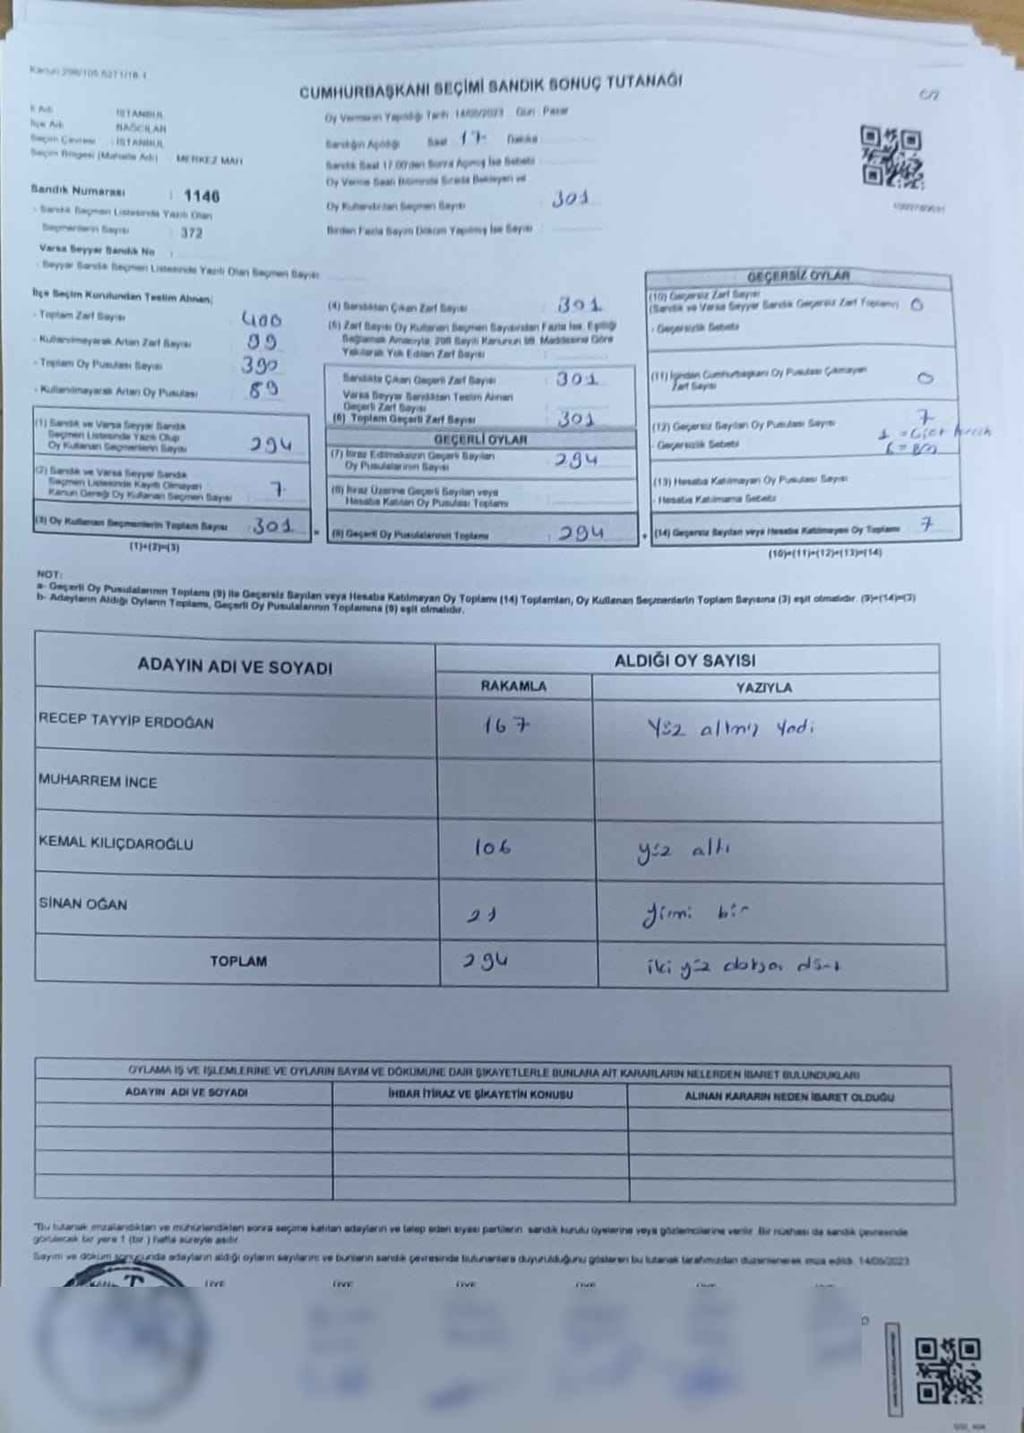 Kanun 298/105 6271/18-1
CUMHURBAŞKANI SEÇİMİ SANDIK SONUÇ TUTANAĞI
İl Adı : İSTANBUL
İlçe Adı : BAĞCILAR
Seçim Çevresi : İSTANBUL
Seçim Bölgesi (Mahalle Adı) : MERKEZ MAH
Sandık Numarası : 1146
- Sandık Seçmen Listesinde Yazılı Olan
Seçmenlerin Sayısı : 372
Varsa Seyyar Sandık No :
- Seyyar Sandık Seçmen Listesinde Yazılı Olan Seçmen Sayısı
Oy Vermenin Yapıldığı Tarih 14/05/2023 Gün : Pazar
Sandığın Açıldığı Saat 17 Dakika
Sandık Saat 17.00'den Sonra Açılmış İse Sebebi
Oy Verme Saati Bitiminde Sırada Bekleyen ve
Oy Kullandırılan Seçmen Sayısı 301
Birden Fazla Sayım Döküm Yapılmış İse Sayısı
İlçe Seçim Kurulundan Teslim Alınan;
- Toplam Zarf Sayısı 400
- Kullanılmayarak Artan Zarf Sayısı 99
- Toplam Oy Pusulası Sayısı 390
- Kullanılmayarak Artan Oy Pusulası 89
(1) Sandık ve Varsa Seyyar Sandık
Seçmen Listesinde Yazılı Olup
Oy Kullanan Seçmenlerin Sayısı 294
(2) Sandık ve Varsa Seyyar Sandık
Seçmen Listesinde Kayıtlı Olmayan
Kanun Gereği Oy Kullanan Seçmen Sayısı 7
(3) Oy Kullanan Seçmenlerin Toplam Sayısı 301
(1)+(2)=(3)
(4) Sandıktan Çıkan Zarf Sayısı : 301
(5) Zarf Sayısı Oy Kullanan Seçmen Sayısından Fazla İse, Eşitliği
Sağlamak Amacıyla, 298 Sayılı Kanunun 98. Maddesine Göre
Yakılarak Yok Edilen Zarf Sayısı
Sandıkta Çıkan Geçerli Zarf Sayısı : 301
Varsa Seyyar Sandıktan Teslim Alınan
Geçerli Zarf Sayısı
(6) Toplam Geçerli Zarf Sayısı 301
GEÇERLİ OYLAR
(7) İtiraz Edilmeksizin Geçerli Sayılan
Oy Pusulalarının Sayısı : 294
(8) İtiraz Üzerine Geçerli Sayılan veya
Hesaba Katılan Oy Pusulası Toplamı
(9) Geçerli Oy Pusulalarının Toplamı : 294
GEÇERSİZ OYLAR
(10) Geçersiz Zarf Sayısı
(Sandık ve Varsa Seyyar Sandık Geçersiz Zarf Toplamı) 0
- Geçersizlik Sebebi
(11) İçinden Cumhurbaşkanı Oy Pusulası Çıkmayan
Zarf Sayısı 0
(12) Geçersiz Sayılan Oy Pusulası Sayısı 7
- Geçersizlik Sebebi
(13) Hesaba Katılmayan Oy Pusulası Sayısı
- Hesaba Katılmama Sebebi
(14) Geçersiz Sayılan veya Hesaba Katılmayan Oy Toplamı 7
(10)+(11)+(12)+(13)=(14)
NOT:
a- Geçerli Oy Pusulalarının Toplamı (9) ile Geçersiz Sayılan veya Hesaba Katılmayan Oy Toplamı (14) Toplamları, Oy Kullanan Seçmenlerin Toplam Sayısına (3) eşit olmalıdır. (9)+(14)=(3)
b- Adayların Aldığı Oyların Toplamı, Geçerli Oy Pusulalarının Toplamına (9) eşit olmalıdır.
ADAYIN ADI VE SOYADI
ALDIĞI OY SAYISI
RAKAMLA YAZIYLA
RECEP TAYYİP ERDOĞAN 167 Yüz altmış yedi
MUHARREM İNCE
KEMAL KILIÇDAROĞLU 106 yüz altı
SİNAN OĞAN 21 yirmi bir
TOPLAM 294 iki yüz doksan dört
OYLAMA İŞ VE İŞLEMLERİNE VE OYLARIN SAYIM VE DÖKÜMÜNE DAİR ŞİKAYETLERLE BUNLARA AİT KARARLARIN NELERDEN İBARET BULUNDUKLARI
ADAYIN ADI VE SOYADI İHBAR İTİRAZ VE ŞİKAYETİN KONUSU ALINAN KARARIN NEDEN İBARET OLDUĞU
"Bu tutanak imzalandıktan ve mühürlendikten sonra seçime katılan adayların ve talep eden siyasi partilerin sandık kurulu üyelerine veya gözlemcilerine verilir. Bir nüshası da sandık çevresinde
görülecek bir yere 1 (bir) hafta süreyle asılır.
Sayım ve döküm sonucunda adayların aldığı oyların sayılarını ve bunların sandık çevresinde bulunanlara duyurulduğunu gösteren bu tutanak tarafımızdan düzenlenerek imza edildi. 14/05/2023